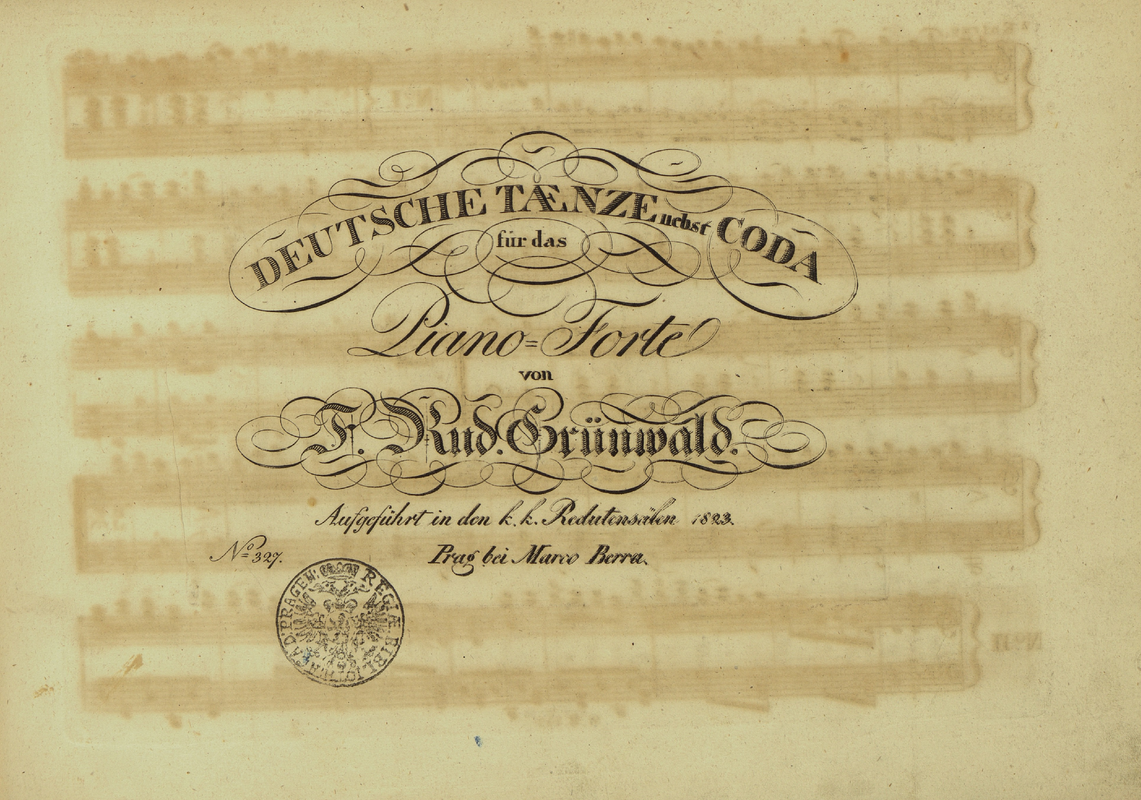 DEUTSCHE TÆNZE nebst CODA
für das
Piano=Forte
von
F. Rud. Grünwald.
Aufgeführt in den k. k. Redutensälen 1823.
No 327.
Prag bei Marco Berra.
REGIÆ BIBLIOTH: ACAD: PRAGEN:
No II